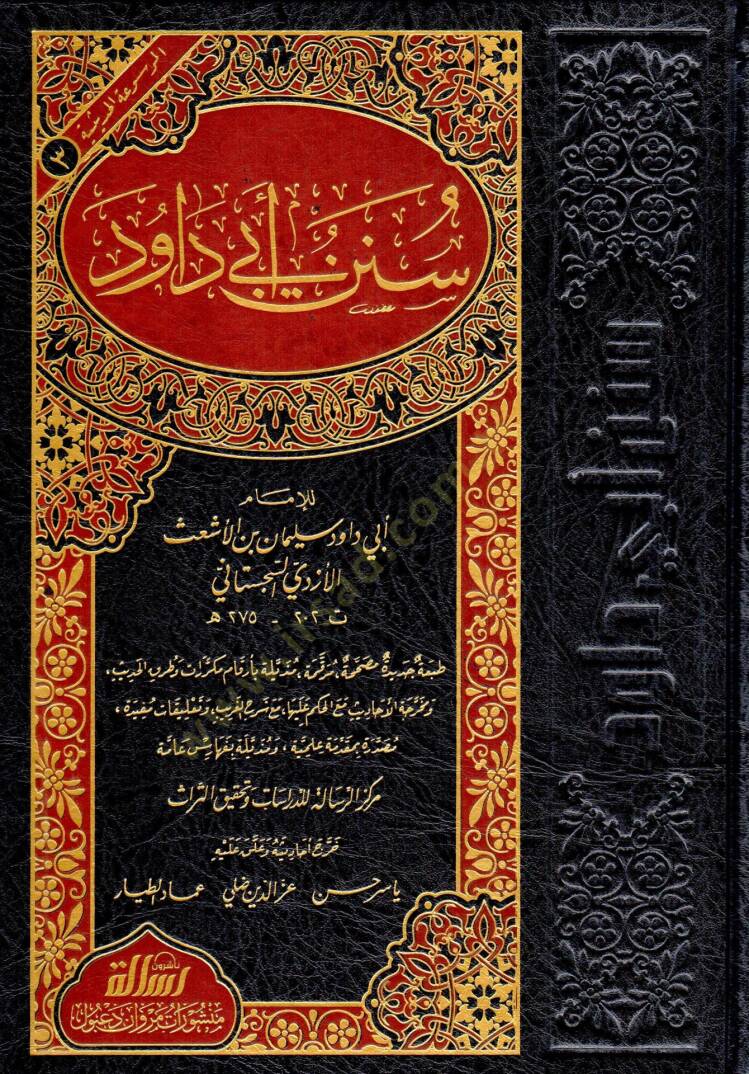 الموسوعة الحديثية
٣
سُنَن أَبي دَاوُد
للإمام
أبي داود سليمان بن الأشعث
الأزدي السجستاني
ت ٢٠٢ - ٢٧٥ هـ
طبعة جديدة مصححة، مرقمة، مذيلة بأرقام مكررات وطرق الحديث،
ومخرجة الأحاديث مع الحكم عليها، مع شرح الغريب، وتعليقات مفيدة،
مصدرة بمقدمة علمية، ومذيلة بفهارس عامة
مركز الرسالة للدراسات وتحقيق التراث
خرج أحاديثه وعلق عليه
ياسر حسن عز الدين ضلي عماد الطيار
رسالة ناشرون
منشورات مروان دعبول
سنن أبي داود
www.irsad.com